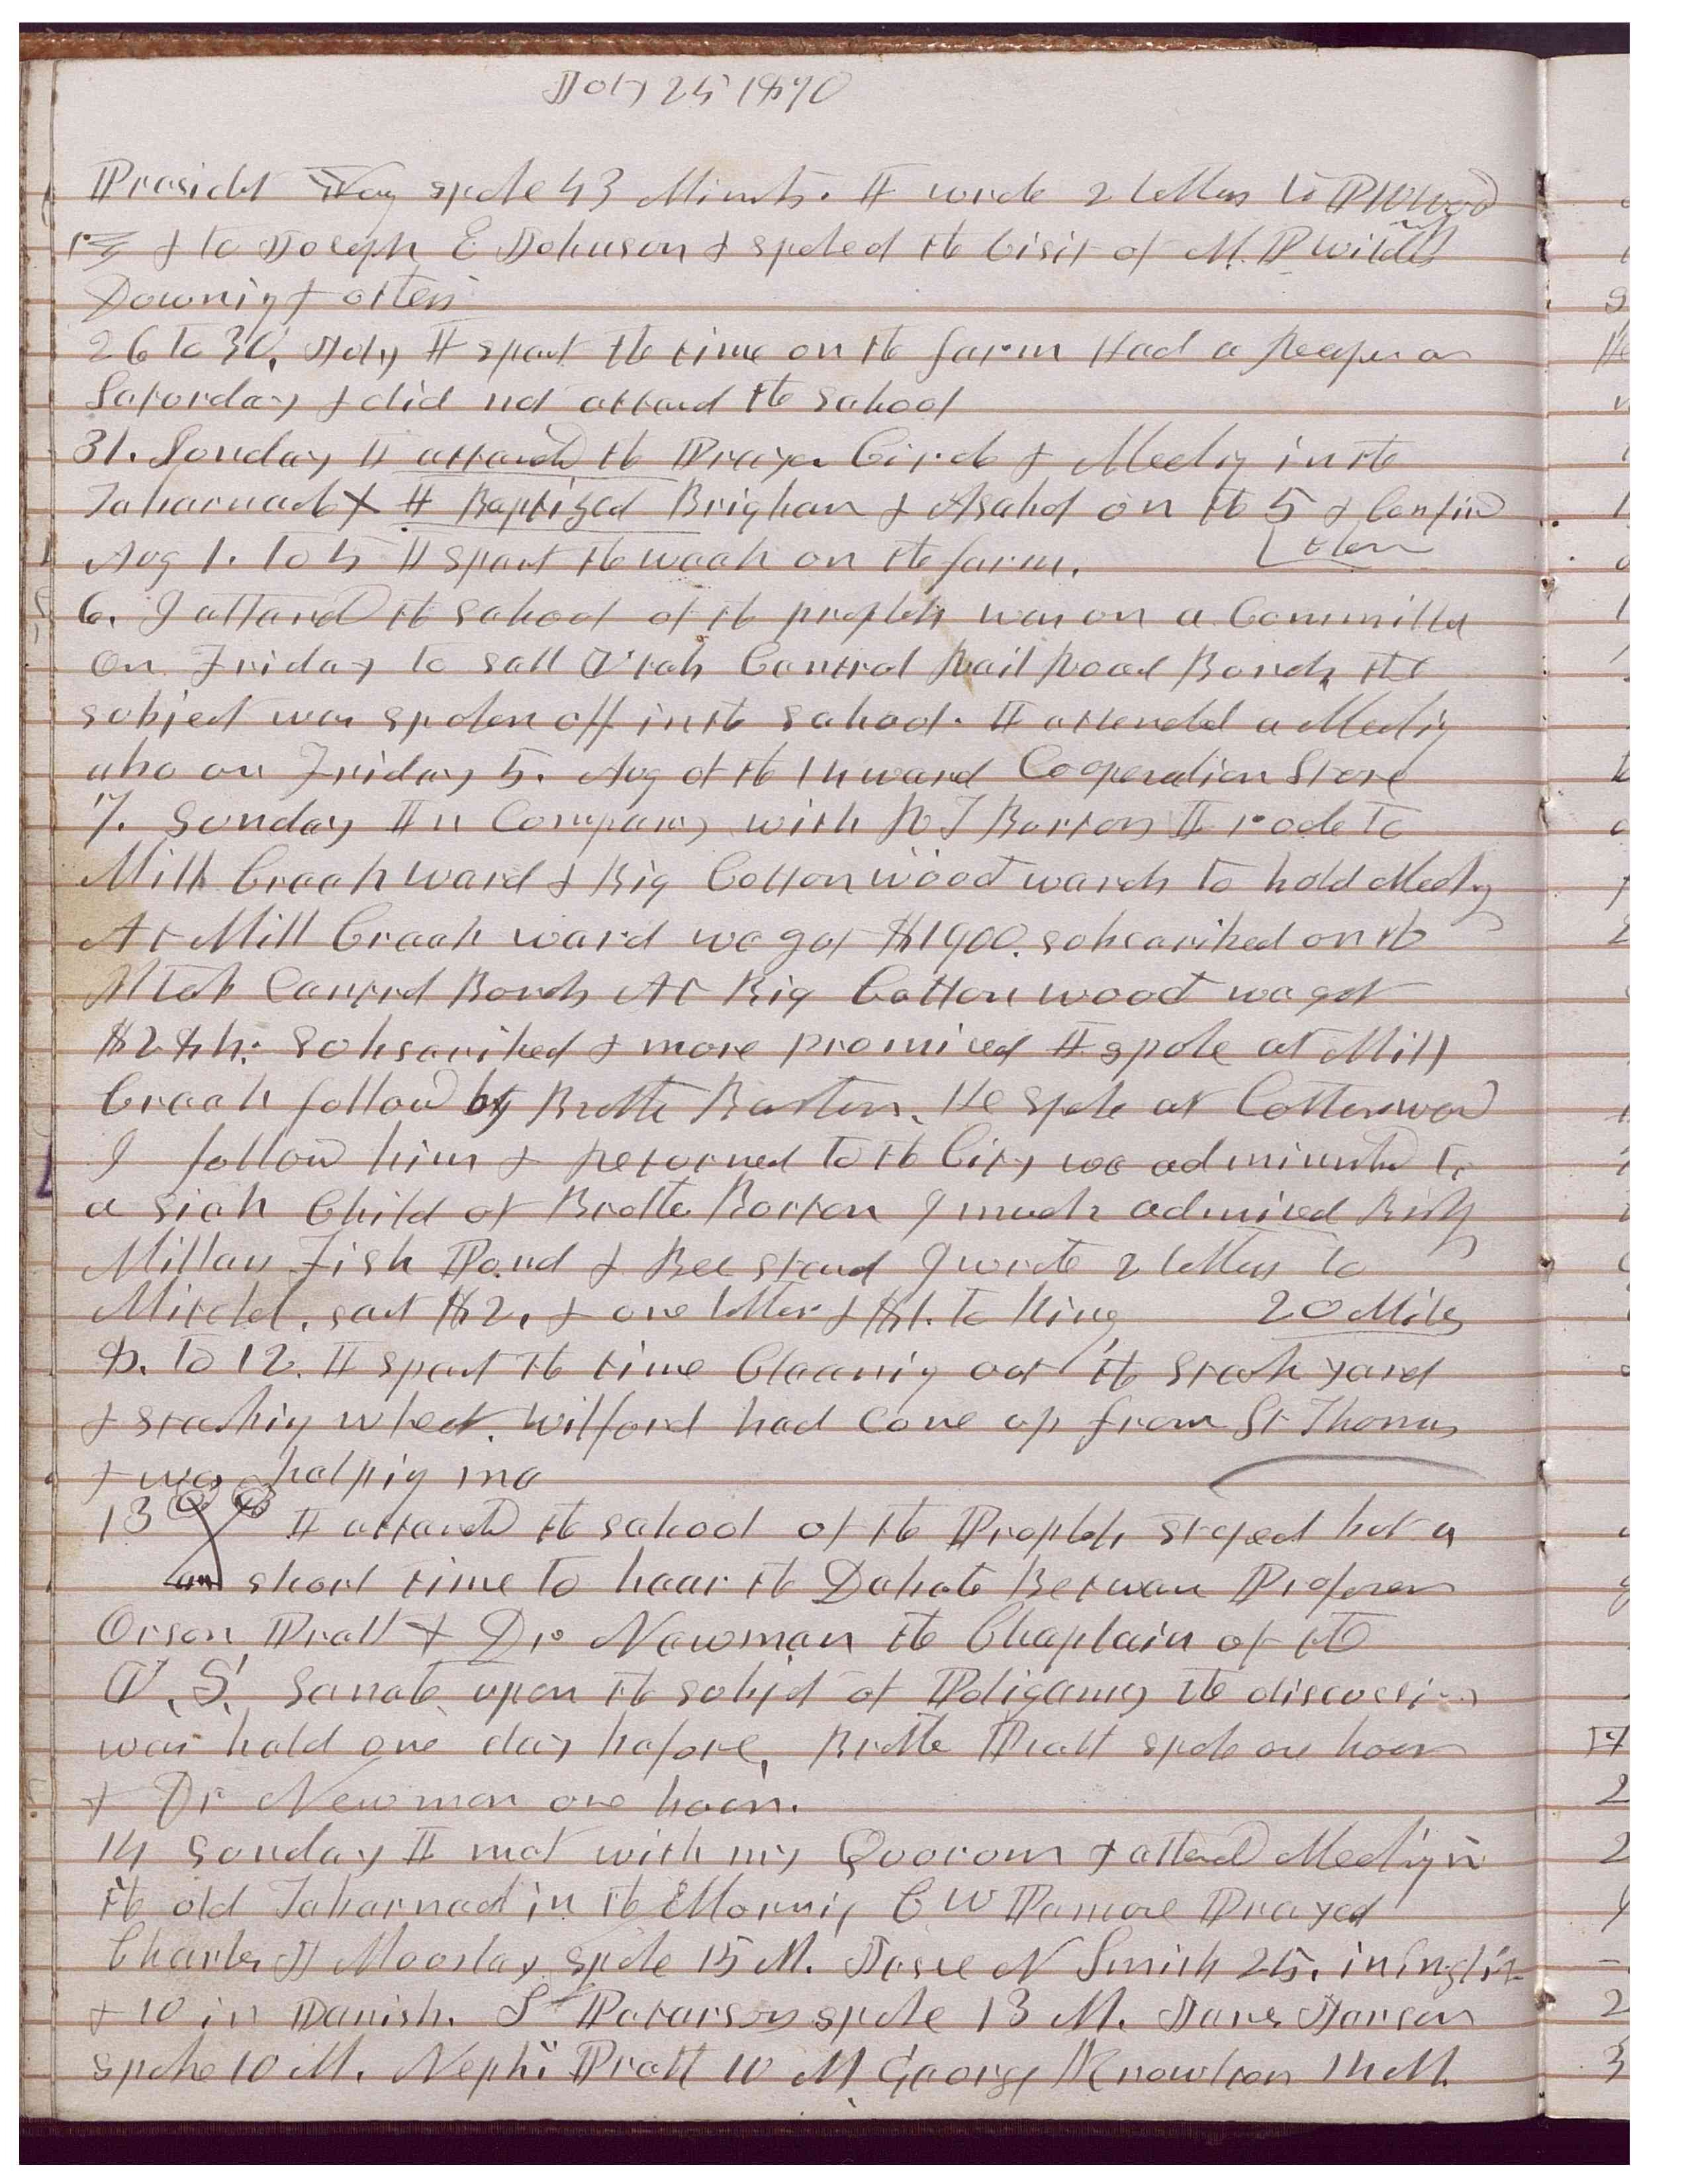 July 25 1870
President Young spoke 43 Minuts. I wrote 2 letters to
& to Joseph E Johnson & spoke of the visit of M. P Wilder
Downing & others
26 to 30, July I spent the time on the farm Had a Reaper on
Saturday & did not attend the school
31. Sunday I attend the Prayer Circle & Meeting in the
Tabernacle X I Baptized Brigham & Asahel on the 5 & Confirmd
them
Aug 1. to 5 I spent the week on the farm.
6. I attend the school of the prophets was on a Committee
On Friday to sell Utah Central Rail Road Bonds, the
subject was spoken off in the school. I attended a Meeting
also on Friday 5. Aug at the 14 ward Cooperation Store
7. Sunday In Company with R T Burton I rode to
Mill Creek ward & Big Cotton wood wards to hold Meeting
At Mill Creek ward we got $1900. subscribed on the
Utah Central Bonds At Big Cotton wood we got
subscribed & more promised I spoke at Mill
Creek follow by Brother Burton. He spoke at Cottonwood
I follow him & returned to the City we administer to
a sick Child of Brother Burton I much admired Bishop
Millers Fish Pond & Bee stand I wrote 2 letters to
Mitchel, sent $2, & one letter & $1. to King 20 Miles
8. to 12. I spent the time Cleaning out the stack yard
& stacking wheat. Wilford had come up from St Thomas
& was helping me
13 I attend the school of the Prophets stayed but a
short time to hear the Debate Between Professor
Orson Pratt & Dr Newman the Chaplain of the
U. S. Senate upon the subject of Poligamy the discussion
was held one day before, Brother Pratt spoke one hour
& Dr Newman one hour.
14 Sunday I met with my Quorum & attend Meeting in
the old Tabernacle in the Morning C W Penrose Prayed
Charles H Moosley spoke 15 M. Jesse N Smith 25. in English
& 10 in Danish. Peterson spoke 13 M. Hans Jensen
spoke 10 M. Nephi Pratt 10 M George Knowlton 14 M.